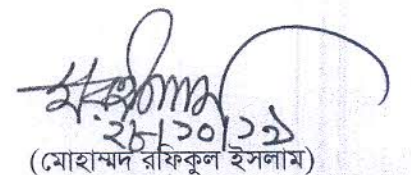 ২৮/১০/১৯
(মোহাম্মদ রফিকুল ইসলাম)